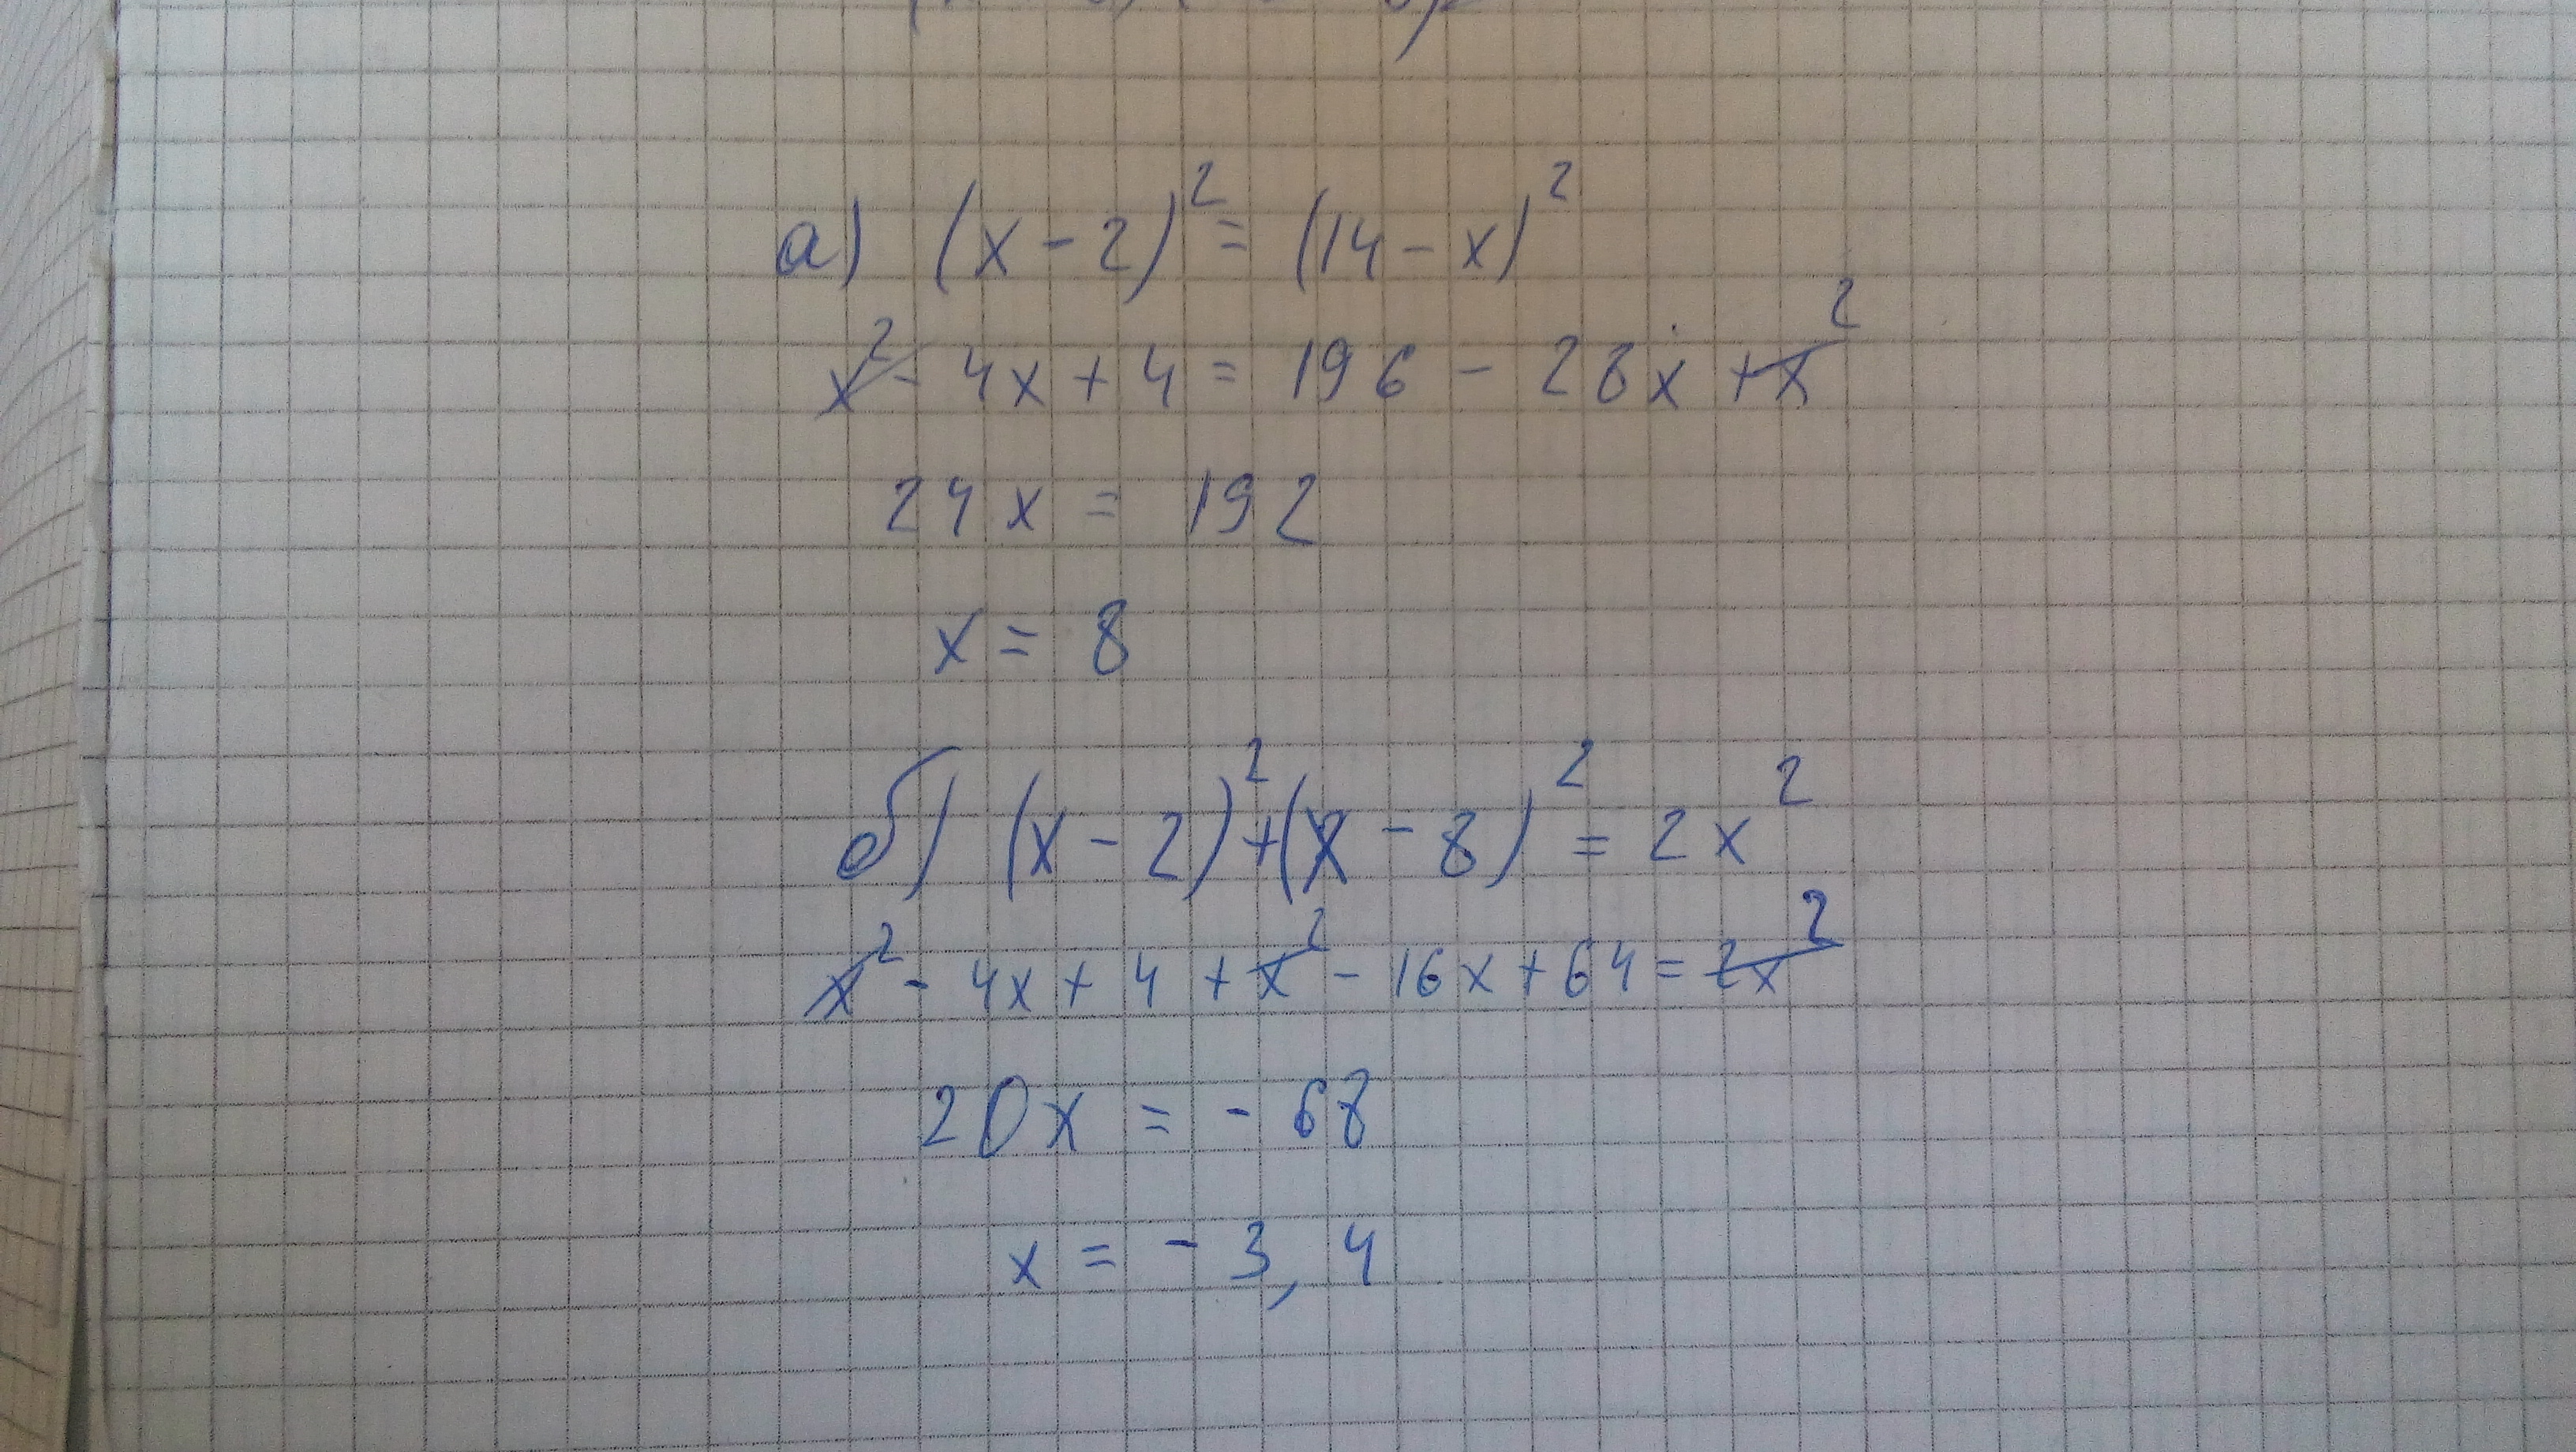 а) (x - 2)² = (14 - x)²
x² - 4x + 4 = 196 - 28x + x²
24x = 192
x = 8
б) (x - 2)² + (x - 8)² = 2x²
x² - 4x + 4 + x² - 16x + 64 = 2x²
20x = - 68
x = - 3,4